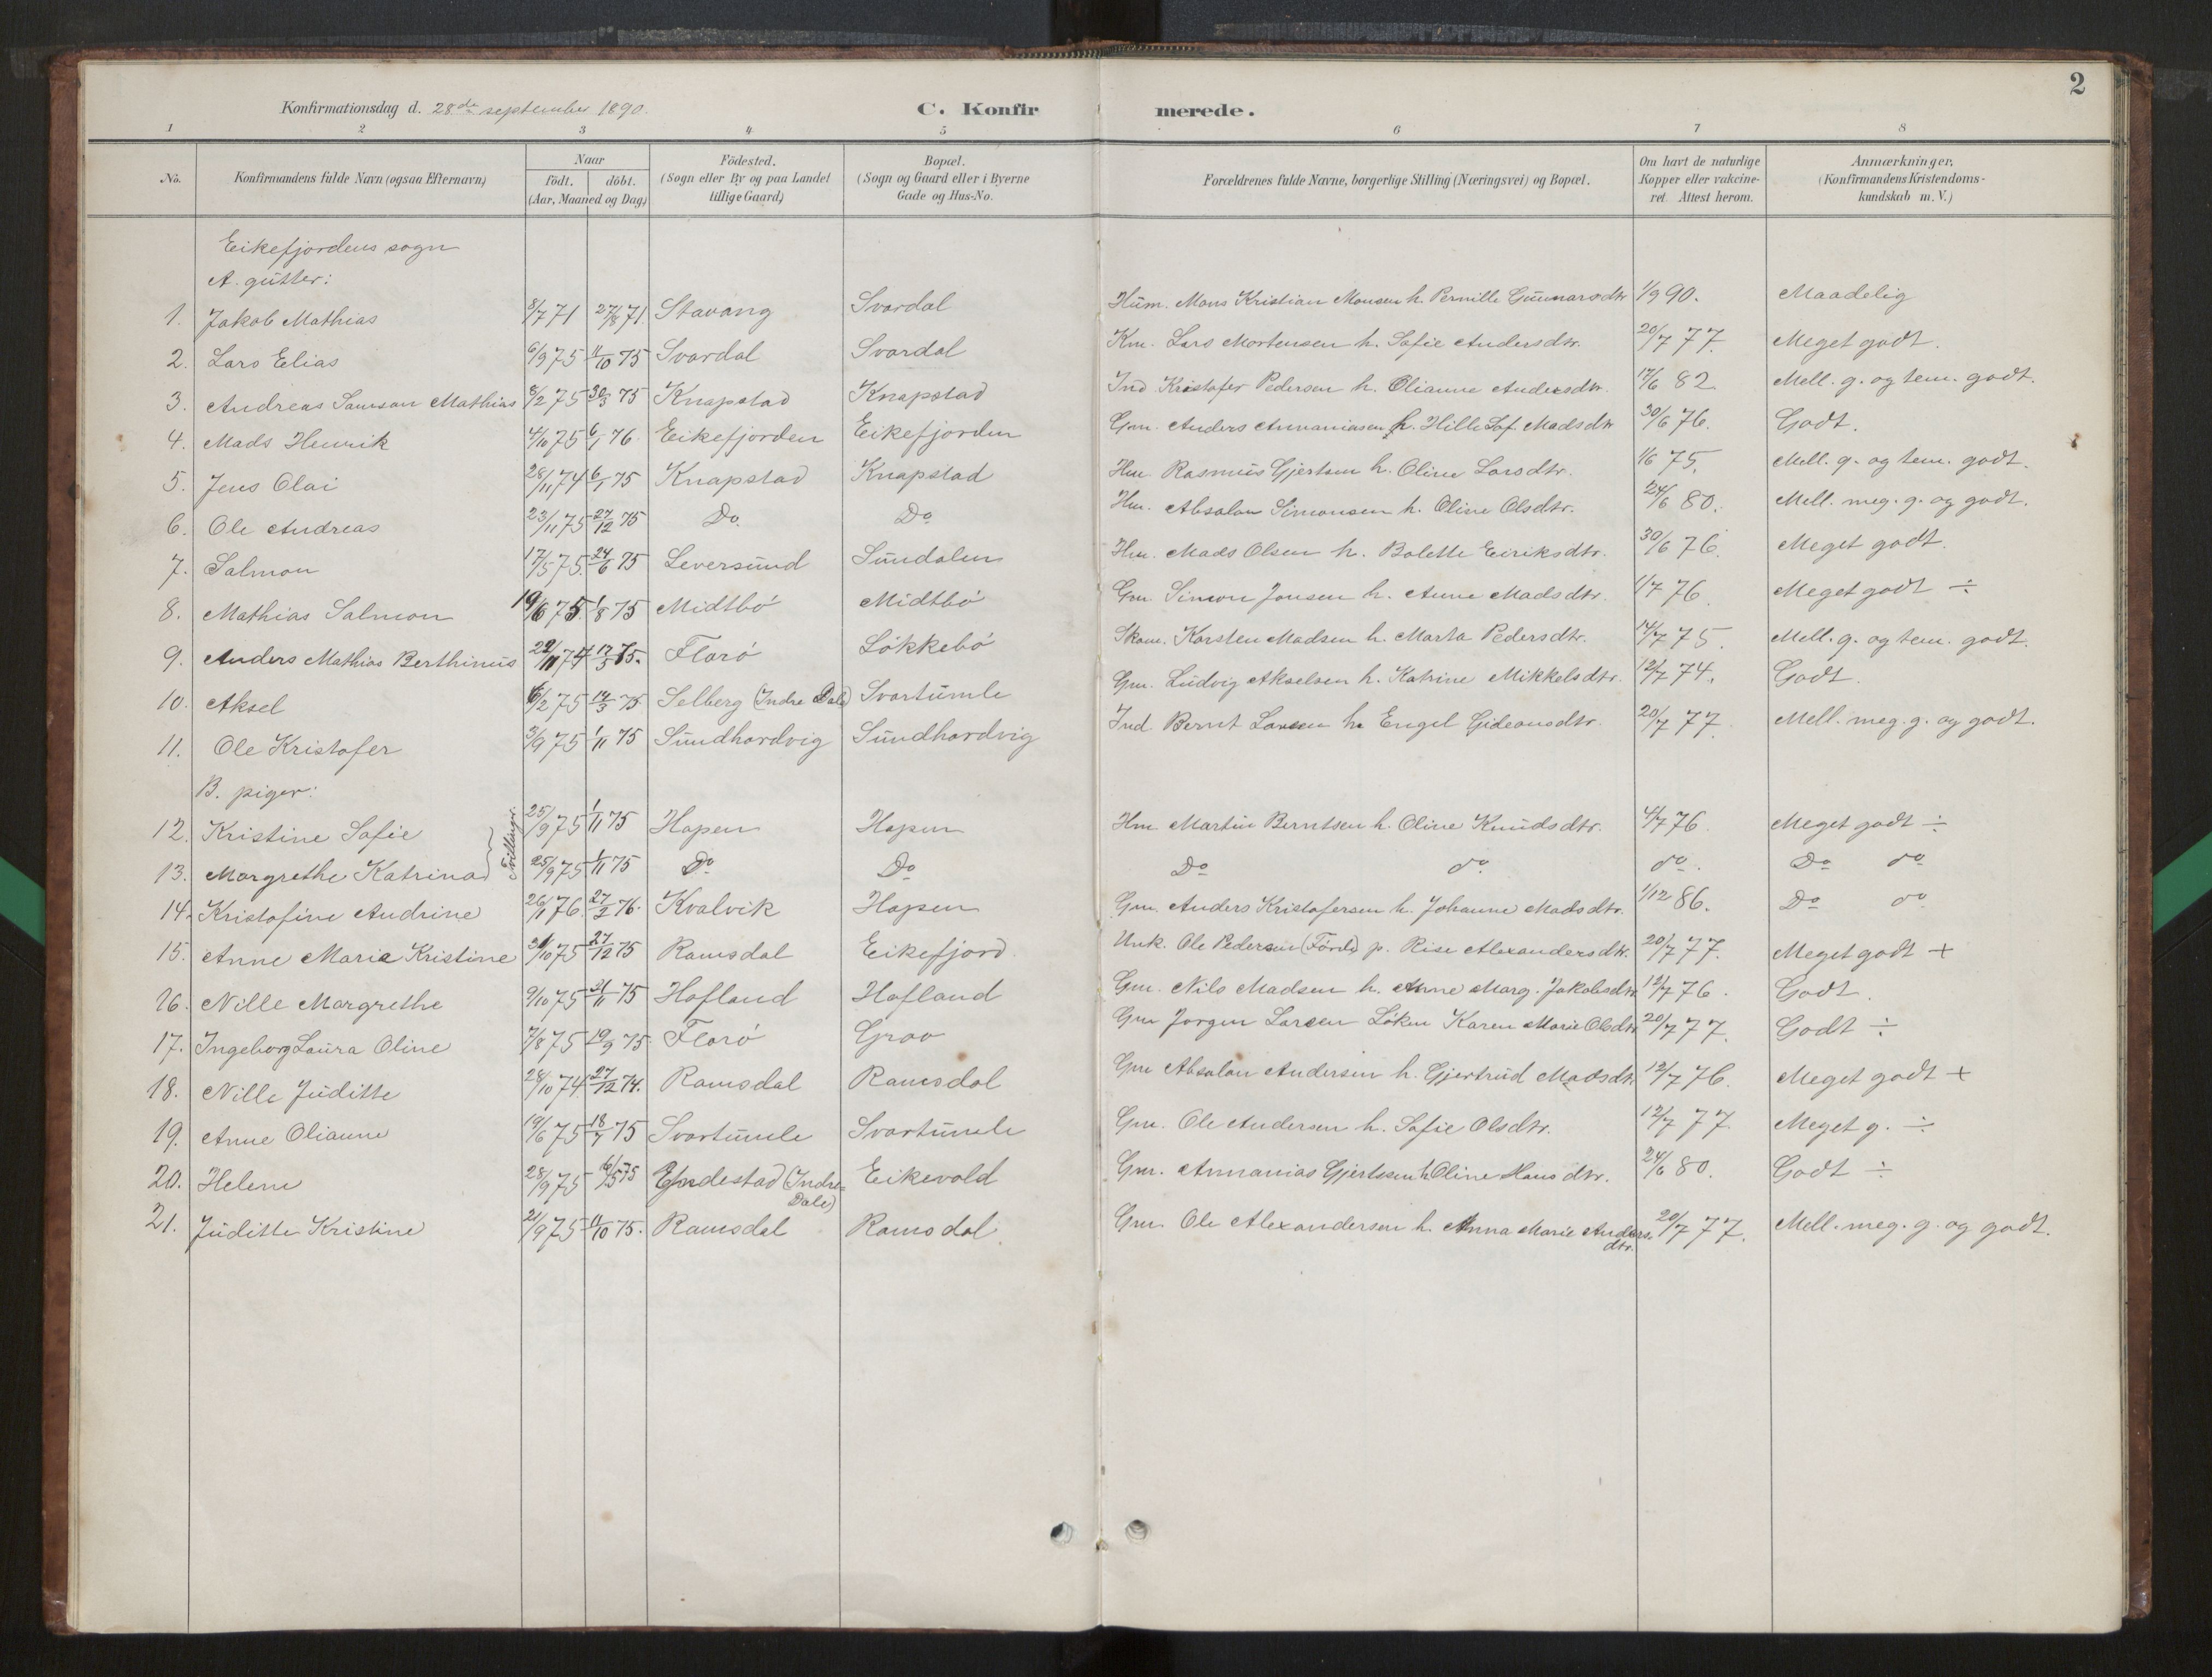 2
Konfirmationsdag d. 28de september 1890. C. Konfirmerede.
1 2 3 4 5 6 7 8
No. Konfirmandens fulde Navn (ogsaa Efternavn) Naar födt. döbt. (Aar, Maaned og Dag) Födested. (Sogn eller By og paa Landet tillige Gaard) Bopæl. (Sogn og Gaard eller i Byerne Gade og Hus-No. Forældrenes fulde Navne, borgerlige Stilling (Næringsvei) og Bopæl. Om havt de naturlige Kopper eller vakcineret. Attest herom. Anmærkninger. (Konfirmandens Kristendomskundskab m. V.)
Eikefjordens sogn
A. gutter:
1. Jakob Mathias 8/7 71 27/8 71. Stavang Svardal Hüm. Mons Kristian Monsen h. Pernille Gunnarsdtr 1/9 90. Maadelig
2. Lars Elias 6/9 75 11/10 75 Svardal Svardal Km. Lars Mortensen h. Sofie Andersdtr. 20/7 77. Meget godt.
3. Andreas Samson Mathias 8/2 75 30/3 75 Knapstad Knapstad Ind Kristofer Pedersen h. Olianne Andersdtr. 17/6 82 Mell. g. og tem. godt.
4. Mads Henrik 4/10 75 6/1 76. Eikefjorden Eikefjorden Gm. Anders Annaniasen h. Hille Sof. Madsdtr 30/6 76. Godt.
5. Jens Olai 28/11 74 6/1 75 Knapstad Knapstad Hm. Rasmus Gjertsen h. Oline Larsdtr. 1/6 75. Mell. g. og tem. godt.
6. Ole Andreas 23/11 75 27/12 75 Do Do Hm. Absalon Simonsen h. Oline Olsdtr. 24/6 80. Mell. meg. g. og godt.
7. Salmon 17/5 75. 24/6 75 Leversund Sundalen Hm. Mads Olsen h. Bolette Eiriksdtr. 30/6 76. Meget godt.
8. Mathias Salmon 19/6 75. 1/8 75 Midtbö Midtbö Gm. Simon Jonsen h. Anne Madsdtr. 1/7 76. Meget godt ÷
9. Anders Mathias Berthinus 22/11 74 17/5 75. Florö Lökkebö Skom. Karsten Madsen h. Marta Pedersdtr. 14/7 75. Mell. g. og tem. godt.
10. Aksel 6/2 75 14/3 75. Selberg (Indre Dale) Svartumle Gm. Ludvig Akselsen h. Katrine Mikkelsdtr. 12/7 74. Godt.
11. Ole Kristofer 3/9 75 1/11 75 Sundhordvig Sundhordvig Ind Bernt Larsen h. Engel Gideonsdtr. 20/7 77. Mell. meg. g. og godt.
B. piger:
12. Kristine Sofie } Tvillinger. 25/9 75 1/11 75 Hopen Hopen Hm. Martin Berntsen h. Oline Knudsdtr. 4/7 76. Meget godt ÷
13. Margrethe Katrina 25/9 75 1/11 75 Do Do Do do do. Do do
14. Kristofine Andrine 26/11 76. 27/2 76. Kvalvik Hopen Gm. Anders Kristofersen h. Johanne Madsdtr. 1/12 86. Do do
15. Anne Marie Kristine 31/10 75 27/12 75 Ramsdal Eikefjord. Unk. Ole Pedersen (Förde) p. Rise Alexandersdtr. 20/7 77. Meget godt +
16. Nille Margrethe 9/10 75 21/11 75 Hofland Hofland Gm. Nils Madsen h. Anne Marg. Jakobsdtr. 12/7 76. Godt.
17. Ingeborg Laura Oline 7/8 75 19/9 75 Florö Grov Gm Jorgen Larsen Löken Karen Marie Olsdtr 20/7 77. Godt ÷
18. Nille Juditte 28/10 74. 27/12 74. Ramsdal Ramsdal Gm Absalon Andersen h. Gjertrud Madsdtr. 12/7 76. Meget godt +
19. Anne Olianne 19/6 75 18/7 75 Svartumle Svartumle Gm. Ole Andersen h. Sofie Olsdtr. 12/7 77. Meget g. ÷
20. Helene 28/9 75 16/5 75 Endestad (Indre Dale) Eikevold Gm. Annanias Gjertsen h Oline Hansdtr. 24/6 80. Godt ÷
21. Juditte Kristine 21/9 75 11/10 75. Ramsdal Ramsdal. Gm. Ole Alexandersen h. Anna Marie Andersdtr. 20/7 77. Mell. meg. g. og godt.